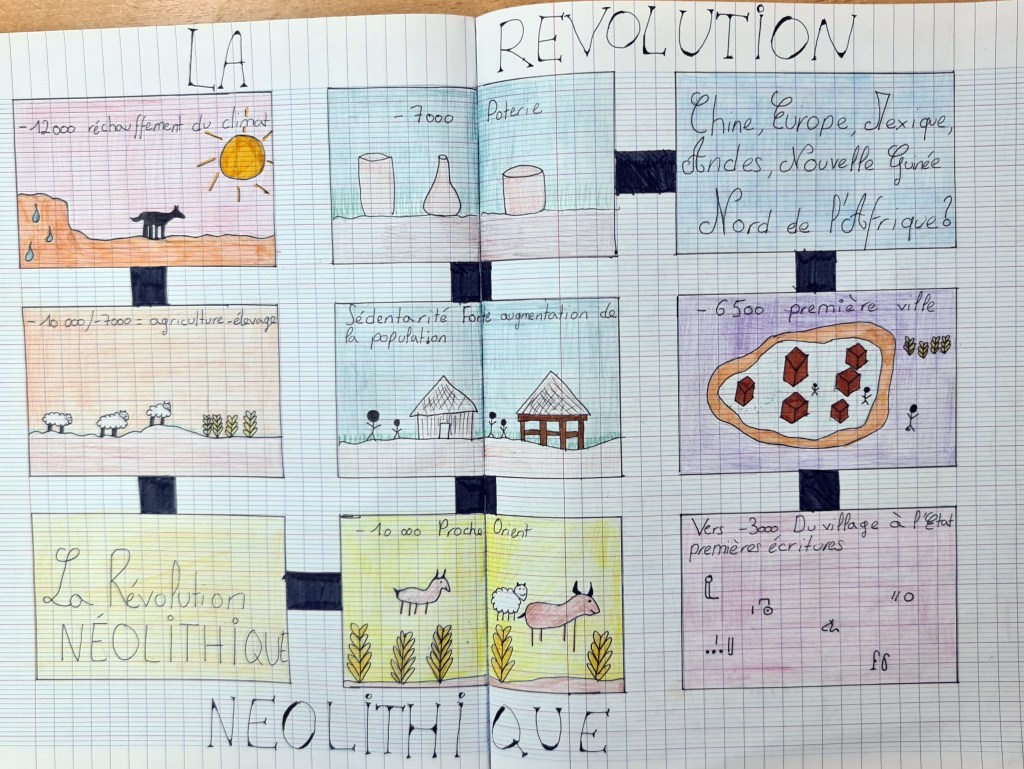 LA REVOLUTiON
-12000 réchauffement du climat
-10 000/-7000 = agriculture-élevage
La Révolution
NÉOLiTHiQUE
-10 000 Proche Orient
Sédentarité Forte augmentation de
la population
-7000 Poterie
Chine, Europe, Mexique,
Andes, Nouvelle Guinée
Nord de l'Afrique?
-6500 première ville
Vers -3000 Du village à l'Etat
premières écritures
NEOLiTHiQUE